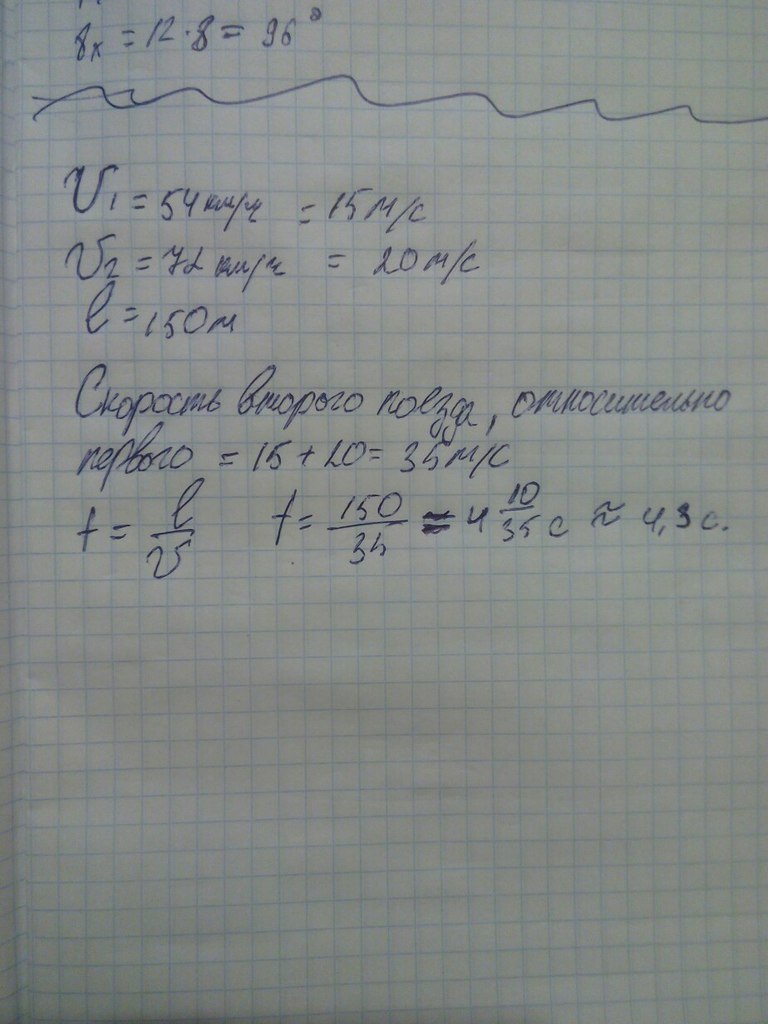 8x = 12 · 8 = 96°
V1 = 54 км/ч = 15 м/с
V2 = 72 км/ч = 20 м/с
l = 150 м
Скорость второго поезда, относительно
первого = 15 + 20 = 35 м/с
t = l/V t = 150/35 = 4 10/35 с ≈ 4,3 с.